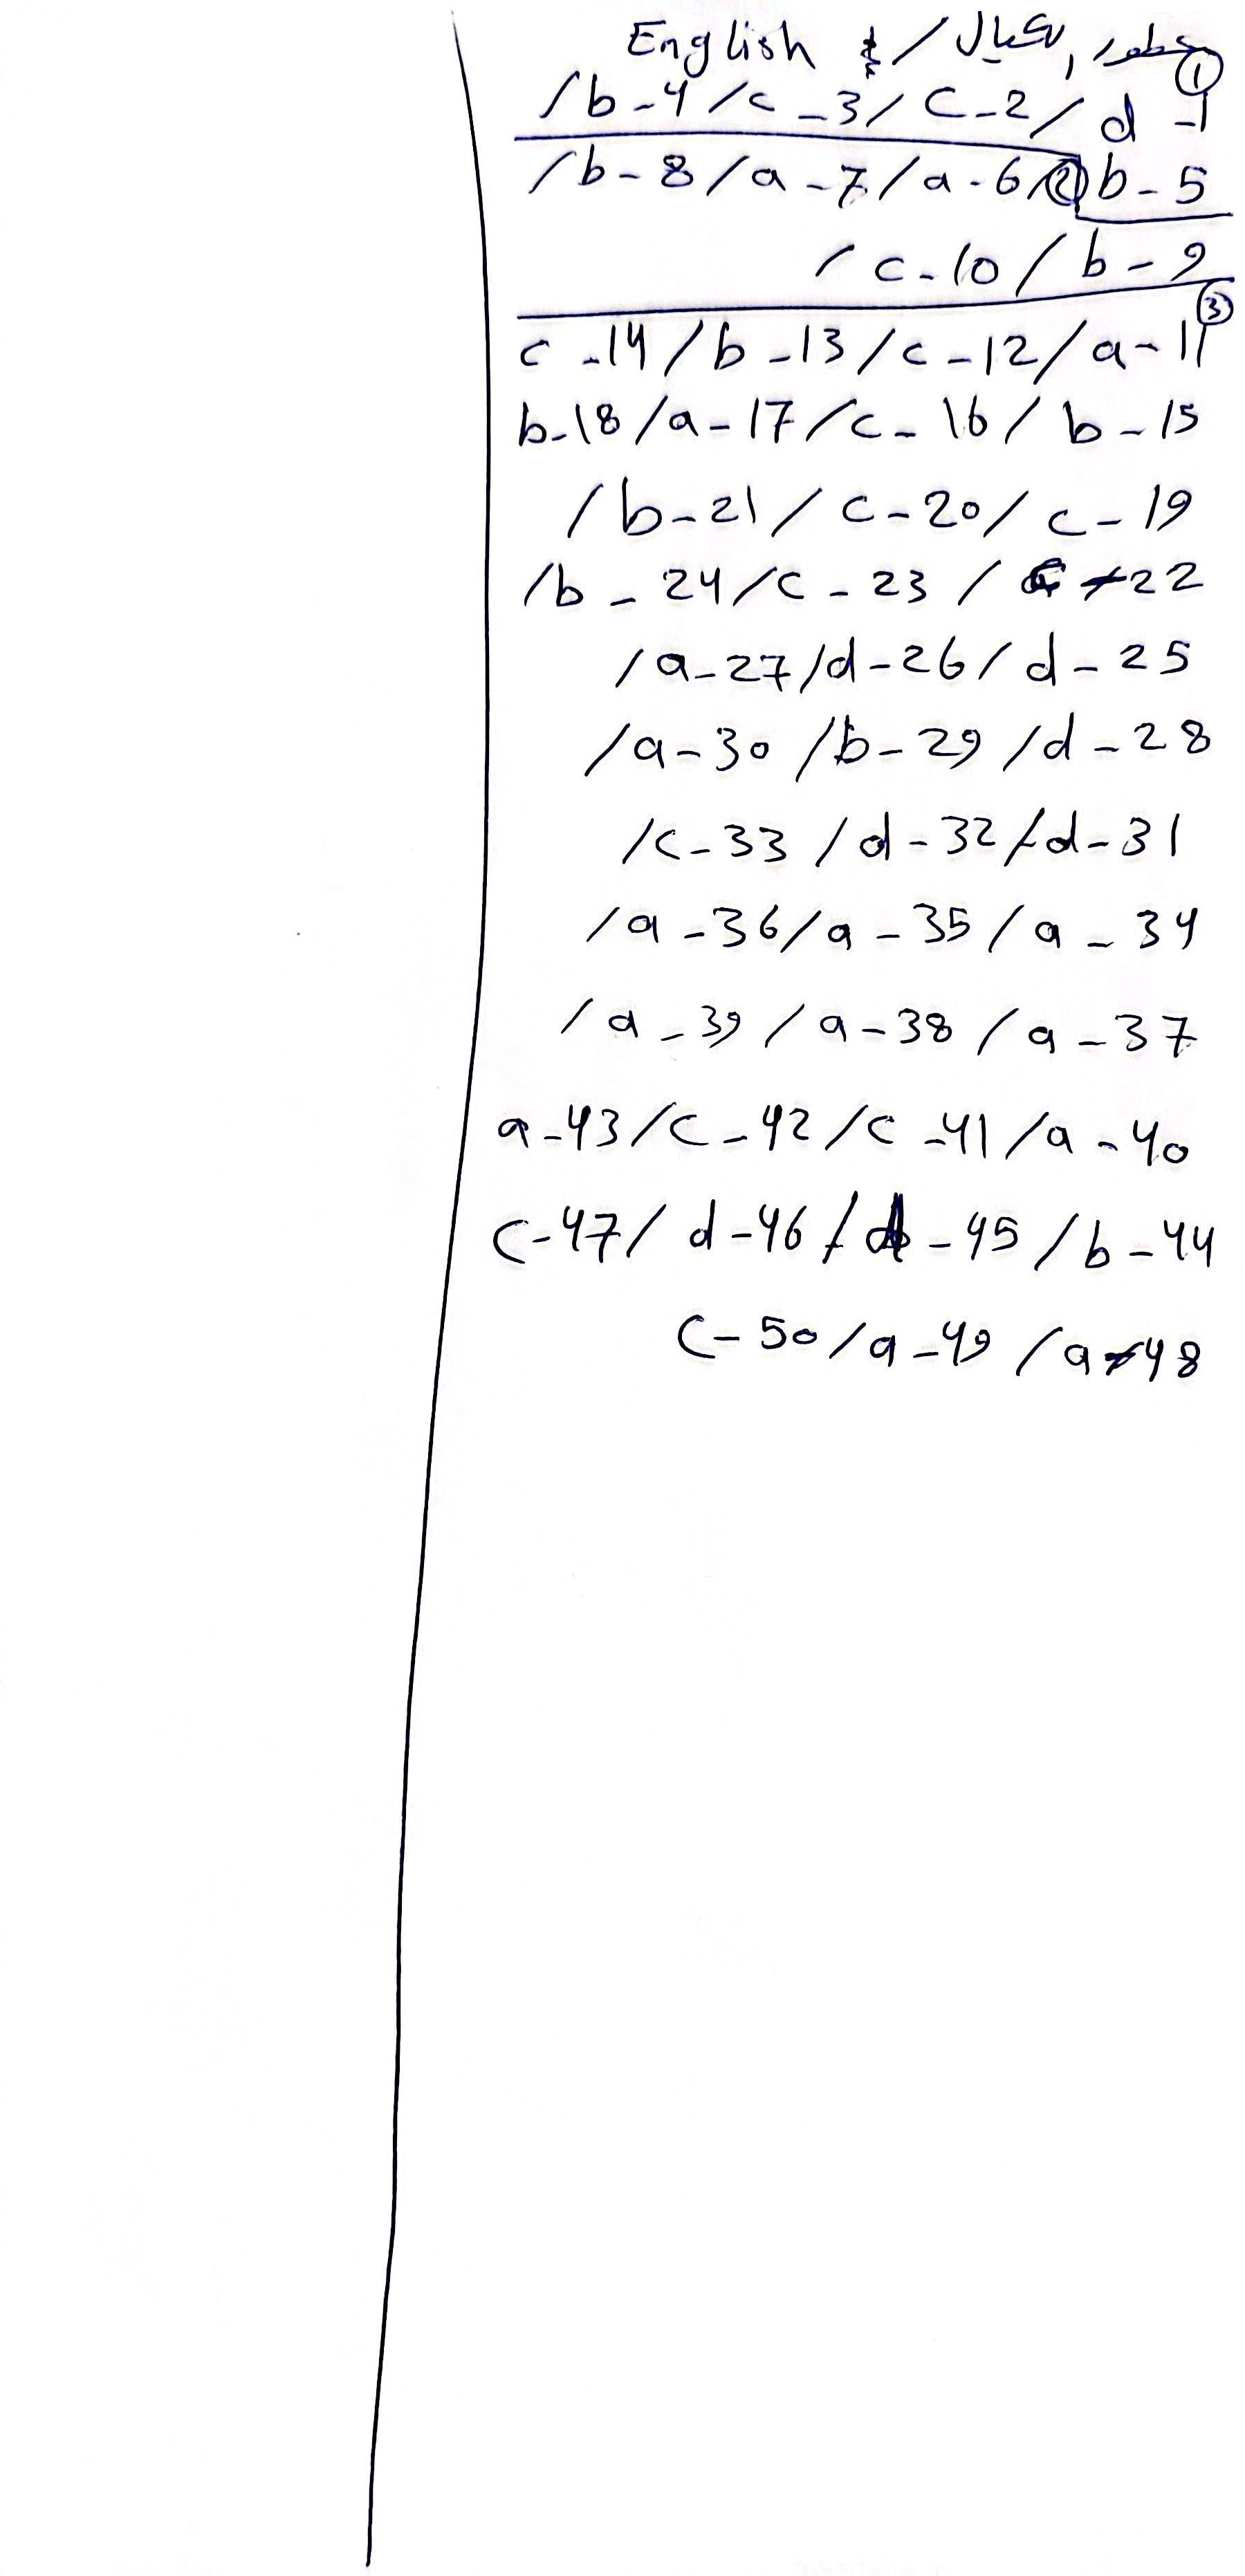 English /
①
1- d / 2- C / 3- c / 4- b /
5- b ② / 6- a / 7- a / 8- b /
9- b / 10- c /
③
11- a / 12- c / 13- b / 14- c
15- b / 16- c / 17- a / 18- b
19- c / 20- c / 21- b /
22- / 23- c / 24- b /
25- d / 26- d / 27- a /
28- d / 29- b / 30- a /
31- d / 32- d / 33- c /
34- a / 35- a / 36- a /
37- a / 38- a / 39- a /
40- a / 41- c / 42- c / 43- a
44- b / 45- / 46- d / 47- c
48- a / 49- a / 50- c